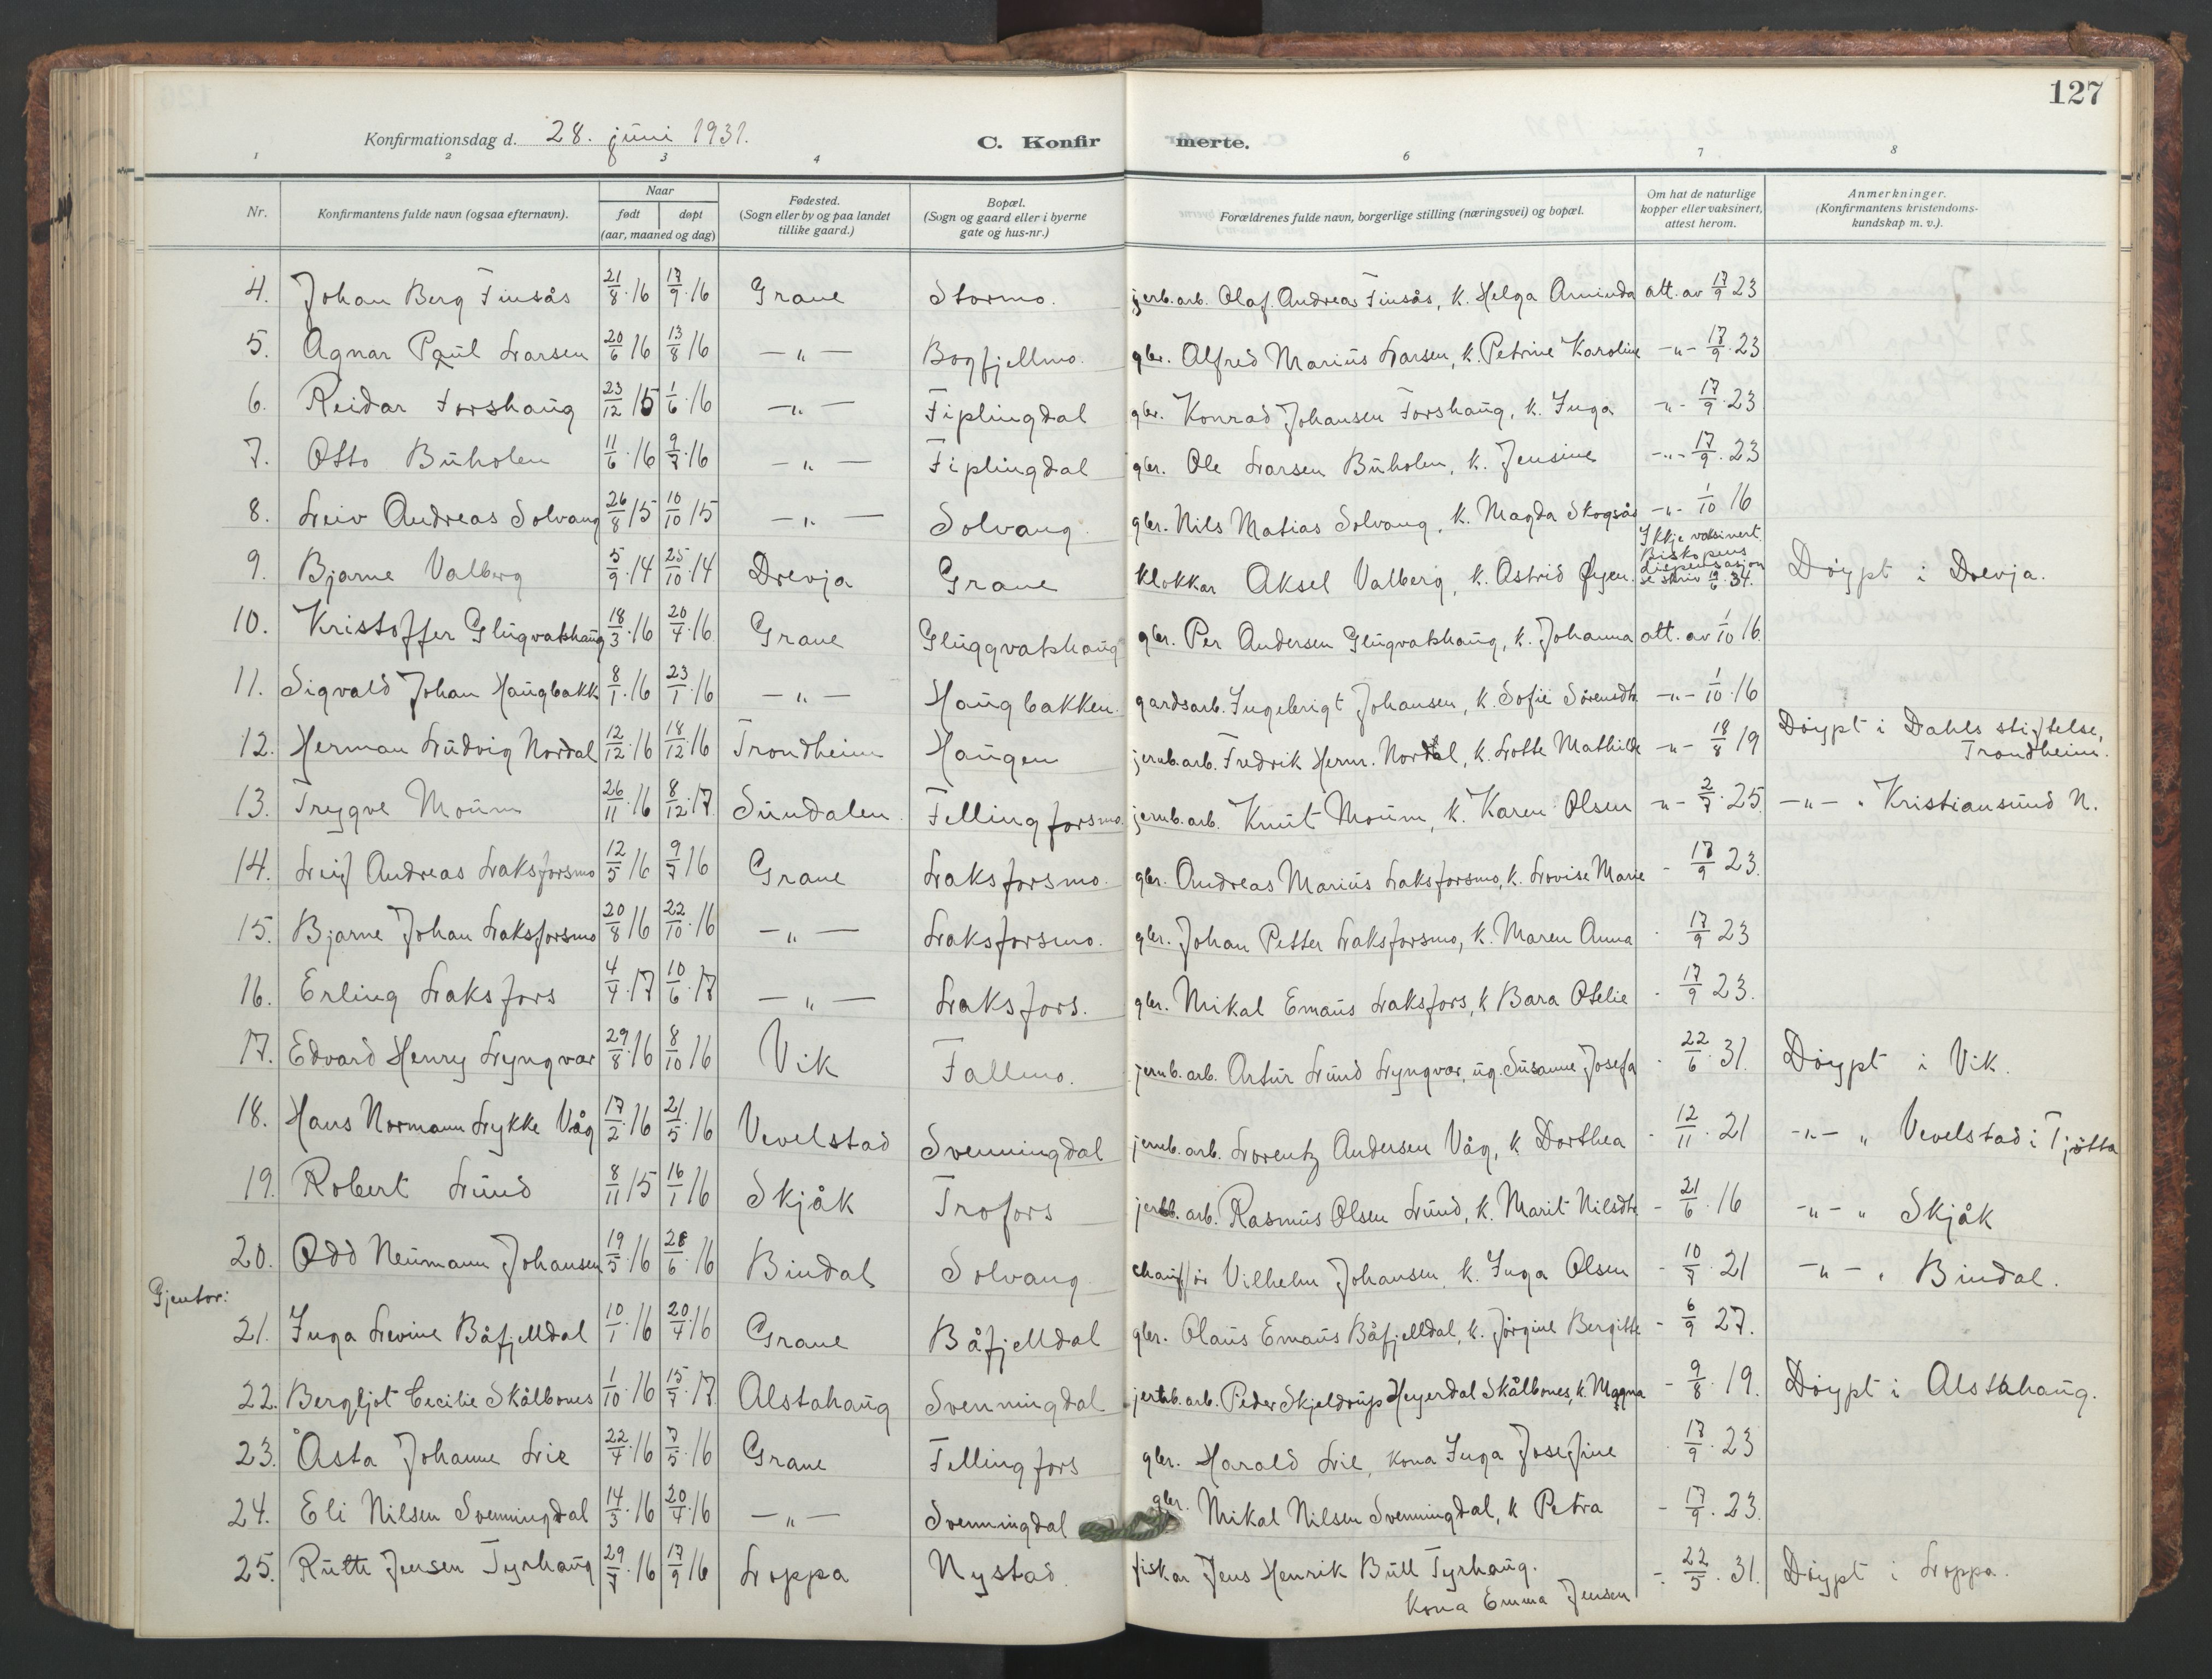 127
Konfirmationsdag d. 28. juni 1931. C. Konfir merte.
1 2 3 4 6 7 8
Nr. Konfirmantens fulde navn (ogsaa efternavn). Naar født døpt (aar, maaned og dag) Fødested. (Sogn eller by og paa landet tillike gaard.) Bopæl. (Sogn og gaard eller i byerne gate og hus-nr.) Forældrenes fulde navn, borgerlige stilling (næringsvei) og bopæl. Om hat de naturlige kopper eller vaksinert, attest herom. Anmerkninger. (Konfirmantens kristendoms-kundskap m. v.).
4. Johan Berg Finsås 21/8.16 17/9.16 Grane Stormo. jerb.arb. Olaf Andreas Finsås, k. Helga Aminda att. av 17/9 23
5. Agnar Paul Larsen 20/6 16 13/8 16 —"— Bogfjellmo. gbr. Alfred Marius Larsen, k. Petrine Karoline -"- 17/9.23
6. Reidar Forshaug 23/12 15 1/6.16 —"— Fiplingdal gbr. Konrad Johansen Forshaug, k. Inga -"- 17/9.23
7. Otto Buholen 11/6.16 9/7.16 —"— Fiplingdal gbr. Ole Larsen Buholen, k. Jensine -"- 17/9.23
8. Leiv Andreas Solvang 26/8 15 10/10 15 —"— Solvang. gbr. Nils Matias Solvang, k. Magda Skogsås -"- 1/10 16
9. Bjarne Valberg 5/9.14 25/10.14 Drevja Grane klokkar Aksel Valberg, k. Astrid Øyen. Ikkje vaksinert. Biskopens dispensasjon se skriv 19/6.34. Døypt i Drevja.
10. Kristoffer Glugvatshaug 18/3.16 20/4.16 Grane Gluggvatshaug gbr. Per Andersen Glugvatshaug, k. Johanna att. av 1/10 16.
11. Sigvald Johan Haugbakk 8/1.16 23/1.16 —"— Haugbakken. gardsarb. Ingebrigt Johansen, k. Sofie Sörensdtr. -"- 1/10.16
12. Herman Ludvig Nordal 12/12.16 18/12 16 Trondheim Haugen jernb.arb. Fredrik Herm. Nordal, k. Lotte Mathilde -"- 18/8 19 Døypt i Dahls stiftelse, Trondheim.
13. Trygve Moum 26/11.16 8/12.17 Sundalen. Fellingforsmo. jernb.arb. Knut Moum, k. Karen Olsen -"- 2/7.25 -"- " Kristiansund N.
14. Leif Andreas Laksforsmo 12/5 16 9/7 16 Grane Laksforsmo. gbr. Andreas Marius Laksforsmo, k. Lovise Marie - 17/9 23.
15. Bjarne Johan Laksforsmo 20/8 16 22/10.16 —"— Laksforsmo. gbr. Johan Petter Laksforsmo, k. Maren Anna - 17/9 23
16. Erling Laksfors 4/4.17 10/6.17 —"— Laksfors. gbr. Mikal Emaus Laksfors, k Bara Otelie - 17/9 23.
17. Edvard Henry Lyngvær 29/8.16 8/10 16 Vik Fallmo. jernb.arb. Artur Lund Lyngvær, ug. Susanne Josefa - 22/6.31. Døypt i Vik.
18. Hans Normann Lykke Våg 17/2.16 21/5.16 Vevelstad Svenningdal jernb.arb. Lorentz Andersen Våg, k Dorthea - 12/11.21 -"- " Vevelstad i Tjøtta
19. Robert Lund 8/11 15 16/1 16 Skjåk Trofors jernb.arb. Rasmus Olsen Lund, k. Marit Nilsdtr - 21/6.16 -"- " Skjåk
20. Odd Neumann Johansen 19/5.16 26/6.16 Bindal Solvang chauffør Vilhelm Johansen, k. Inga Olsen - 10/7.21 -"- " Bindal.
Gjentor:
21. Inga Levine Båfjelldal 10/1.16 20/4.16 Grane Båfjelldal gbr. Olaus Emaus Båfjelldal, k. Jørgine Bergitte - 6/9 27.
22. Bergljot Cecilie Skålbones 1/10.16 15/7.17. Alstahaug Svenningdal jernb.arb. Peder Skjeldrup Heyerdal Skålbones, k. Magna - 9/8.19. Døypt i Alstahaug.
23. Åsta Johanne Lie 22/4.16 7/5.16 Grane Fellingfors gbr. Harald Lie, kona Inga Josefine - 17/9.23
24. Eli Nilsen Svenningdal 14/3.16 20/4.16 —"— Svenningdal gbr. Mikal Nilsen Svenningdal, k Petra - 17/9.23.
25. Rutt Jensen Tyrhaug 29/7.16 17/9 16 Loppa Nystad. fiskar Jens Henrik Bull Tyrhaug. - 22/5.31. Døypt i Loppa.
kona Emma Jensen